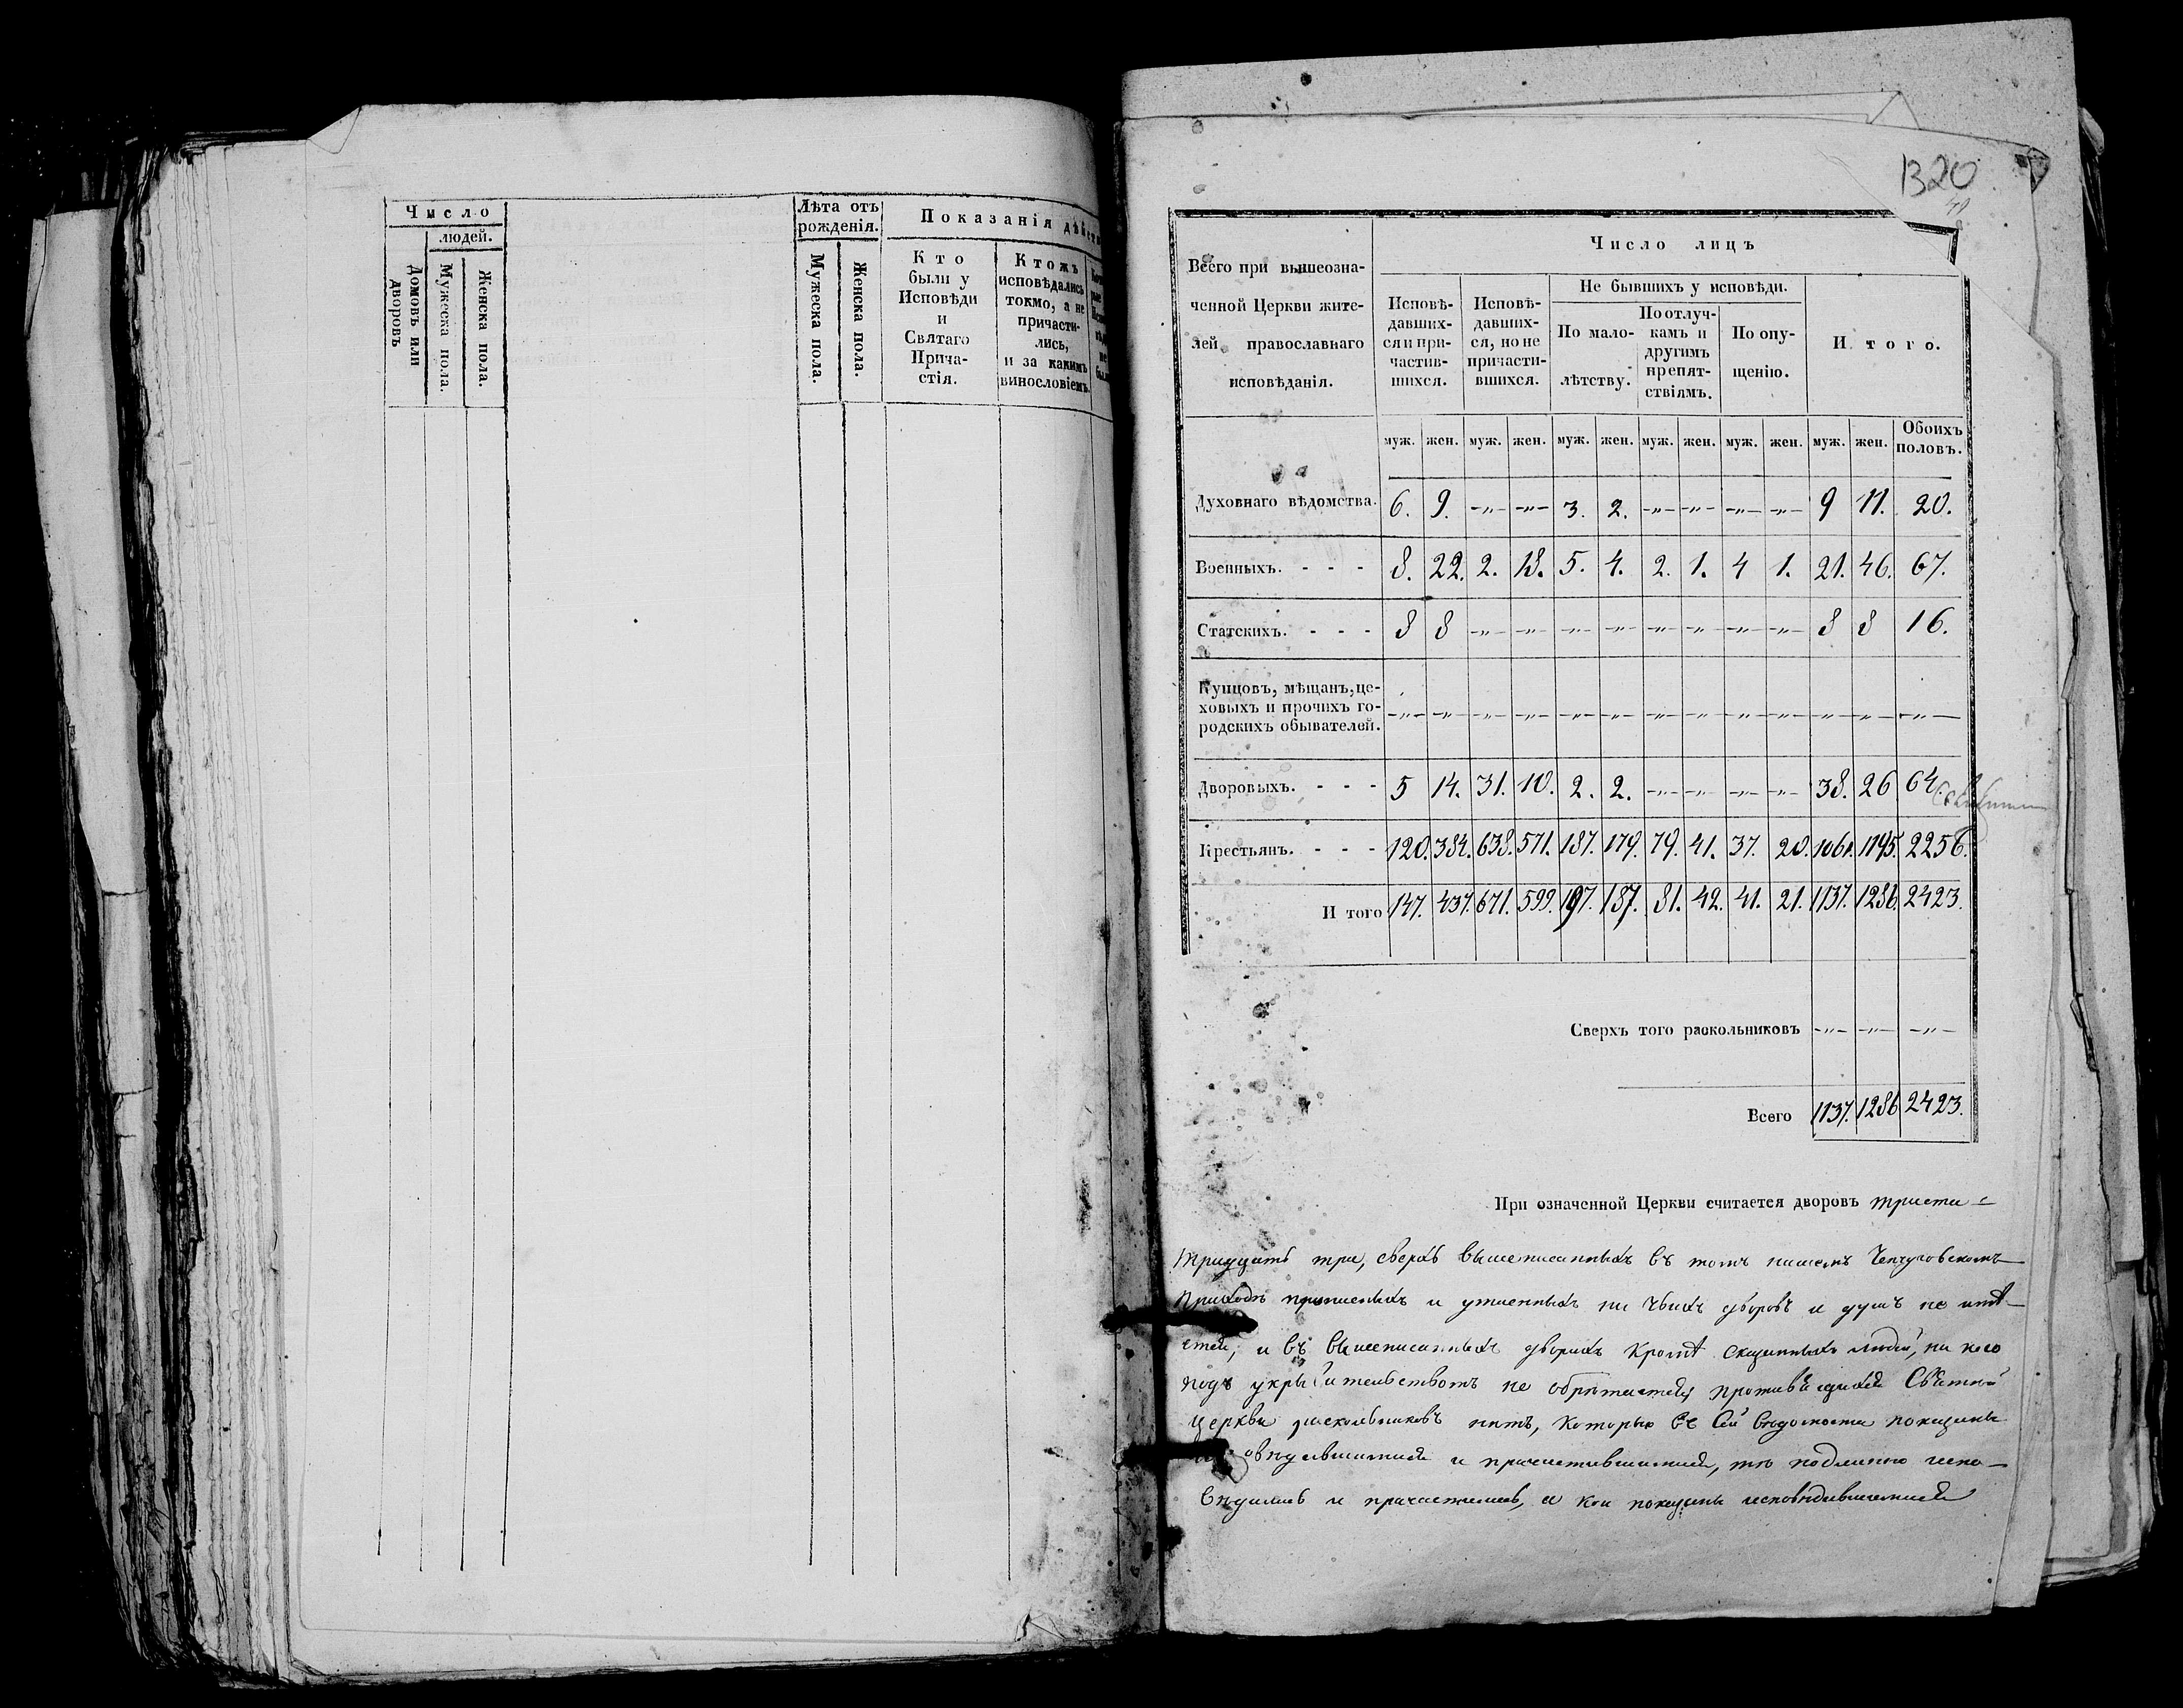 Число
людей.
Домовъ или дворовъ
Мужеска пола.
Женска пола.
Лѣта отъ рожденія.
Мужеска пола.
Женска пола.
Показанія дѣйст
Кто
были у
Исповѣди
и
Святаго
Прича-
стія.
Ктожъ
исповѣдались
токмо, а не
причасти-
лись,
и за какимъ
винословіемъ
1320
Всего при вышеозна-
ченной Церкви жите-
лей православнаго
исповѣданія.
Число лицъ
Исповѣ-
давших-
ся и при-
частив-
шихся.
Исповѣ-
давших-
ся, но не
причасти-
вшихся.
Не бывшихъ у исповѣди.
По мало-
лѣтству.
По отлуч-
камъ и
другимъ
препят-
ствіямъ.
По опу-
щенію.
И того.
муж. жен. муж. жен. муж. жен. муж. жен. муж. жен. муж. жен. Обоихъ половъ.
Духовнаго вѣдомства. 6. 9. -„- -„- 3. 2. -„- -„- -„- -„- 9 11. 20.
Военныхъ. - - - 8. 22. 2. 18. 5. 4. 2. 1. 4 1. 21. 46. 67.
Статскихъ. - - - 8 8 -„- -„- -„- -„- -„- -„- -„- -„- 8 8 16.
Купцовъ, мѣщанъ, це-
ховыхъ и прочихъ го-
родскихъ обывателей. -„- -„- -„- -„- -„- -„- -„- -„- -„- -„- -„- -„- -„-
Дворовыхъ. - - - 5 14. 31. 10. 2. 2. -„- -„- -„- -„- 38. 26 64.
Крестьянъ. - - - 120. 384. 638. 571. 187. 179. 79. 41. 37. 20. 1061. 1195. 2256.
И того 147. 437. 671. 599. 197. 187. 81. 42. 41. 21. 1137. 1286. 2423.
Сверхъ того раскольниковъ -„- -„- -„-
Всего 1137. 1286 2423.
При означенной Церкви считается дворовъ триста
тридцать три, сверхъ вышеписанныхъ въ томъ нашемъ Чепчуговскомъ
приходѣ прописныхъ и утаенныхъ ни чьихъ дворовъ и душъ не имѣ-
ется, и въ вышеписанныхъ дворахъ кромѣ сказанныхъ людей, ни кого
подъ укрывательствомъ не обрѣтается, противящихся Святой
церкви раскольниковъ нѣтъ, которые въ сей вѣдомости показаны
исповѣдавшимися и причастившимися, тѣ подлинно испо-
вѣдались и причастились, а кои показаны исповѣдавшимися